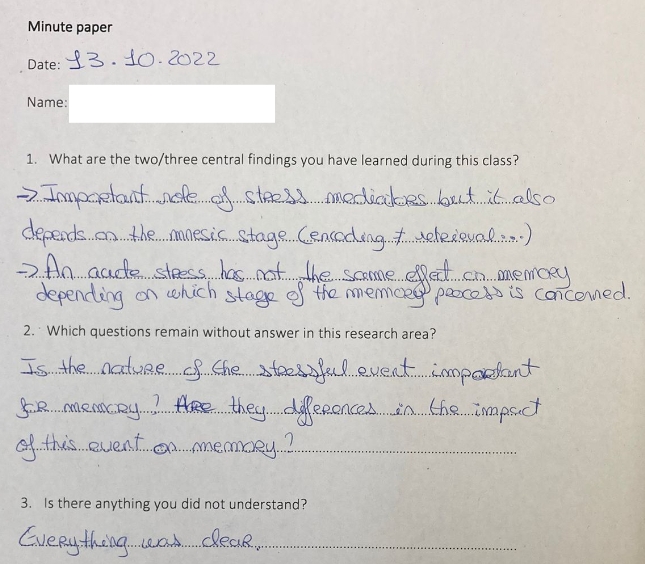 Minute paper
Date: 13.10.2022
Name:
1. What are the two/three central findings you have learned during this class?
-> Important role of stress mediators but it also
depends on the mnesic stage (encoding ≠ retrieval...)
-> An acute stress has not the same effect on memory
depending on which stage of the memory process is concerned.
2. Which questions remain without answer in this research area?
Is the nature of the stressful event important
for memory? Are they differences in the impact
of this event on memory?
3. Is there anything you did not understand?
Everything was clear.